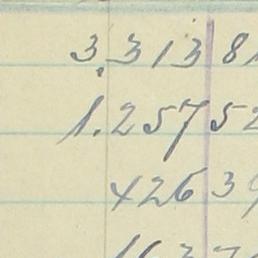 3.313 81
1.257 52
426 39